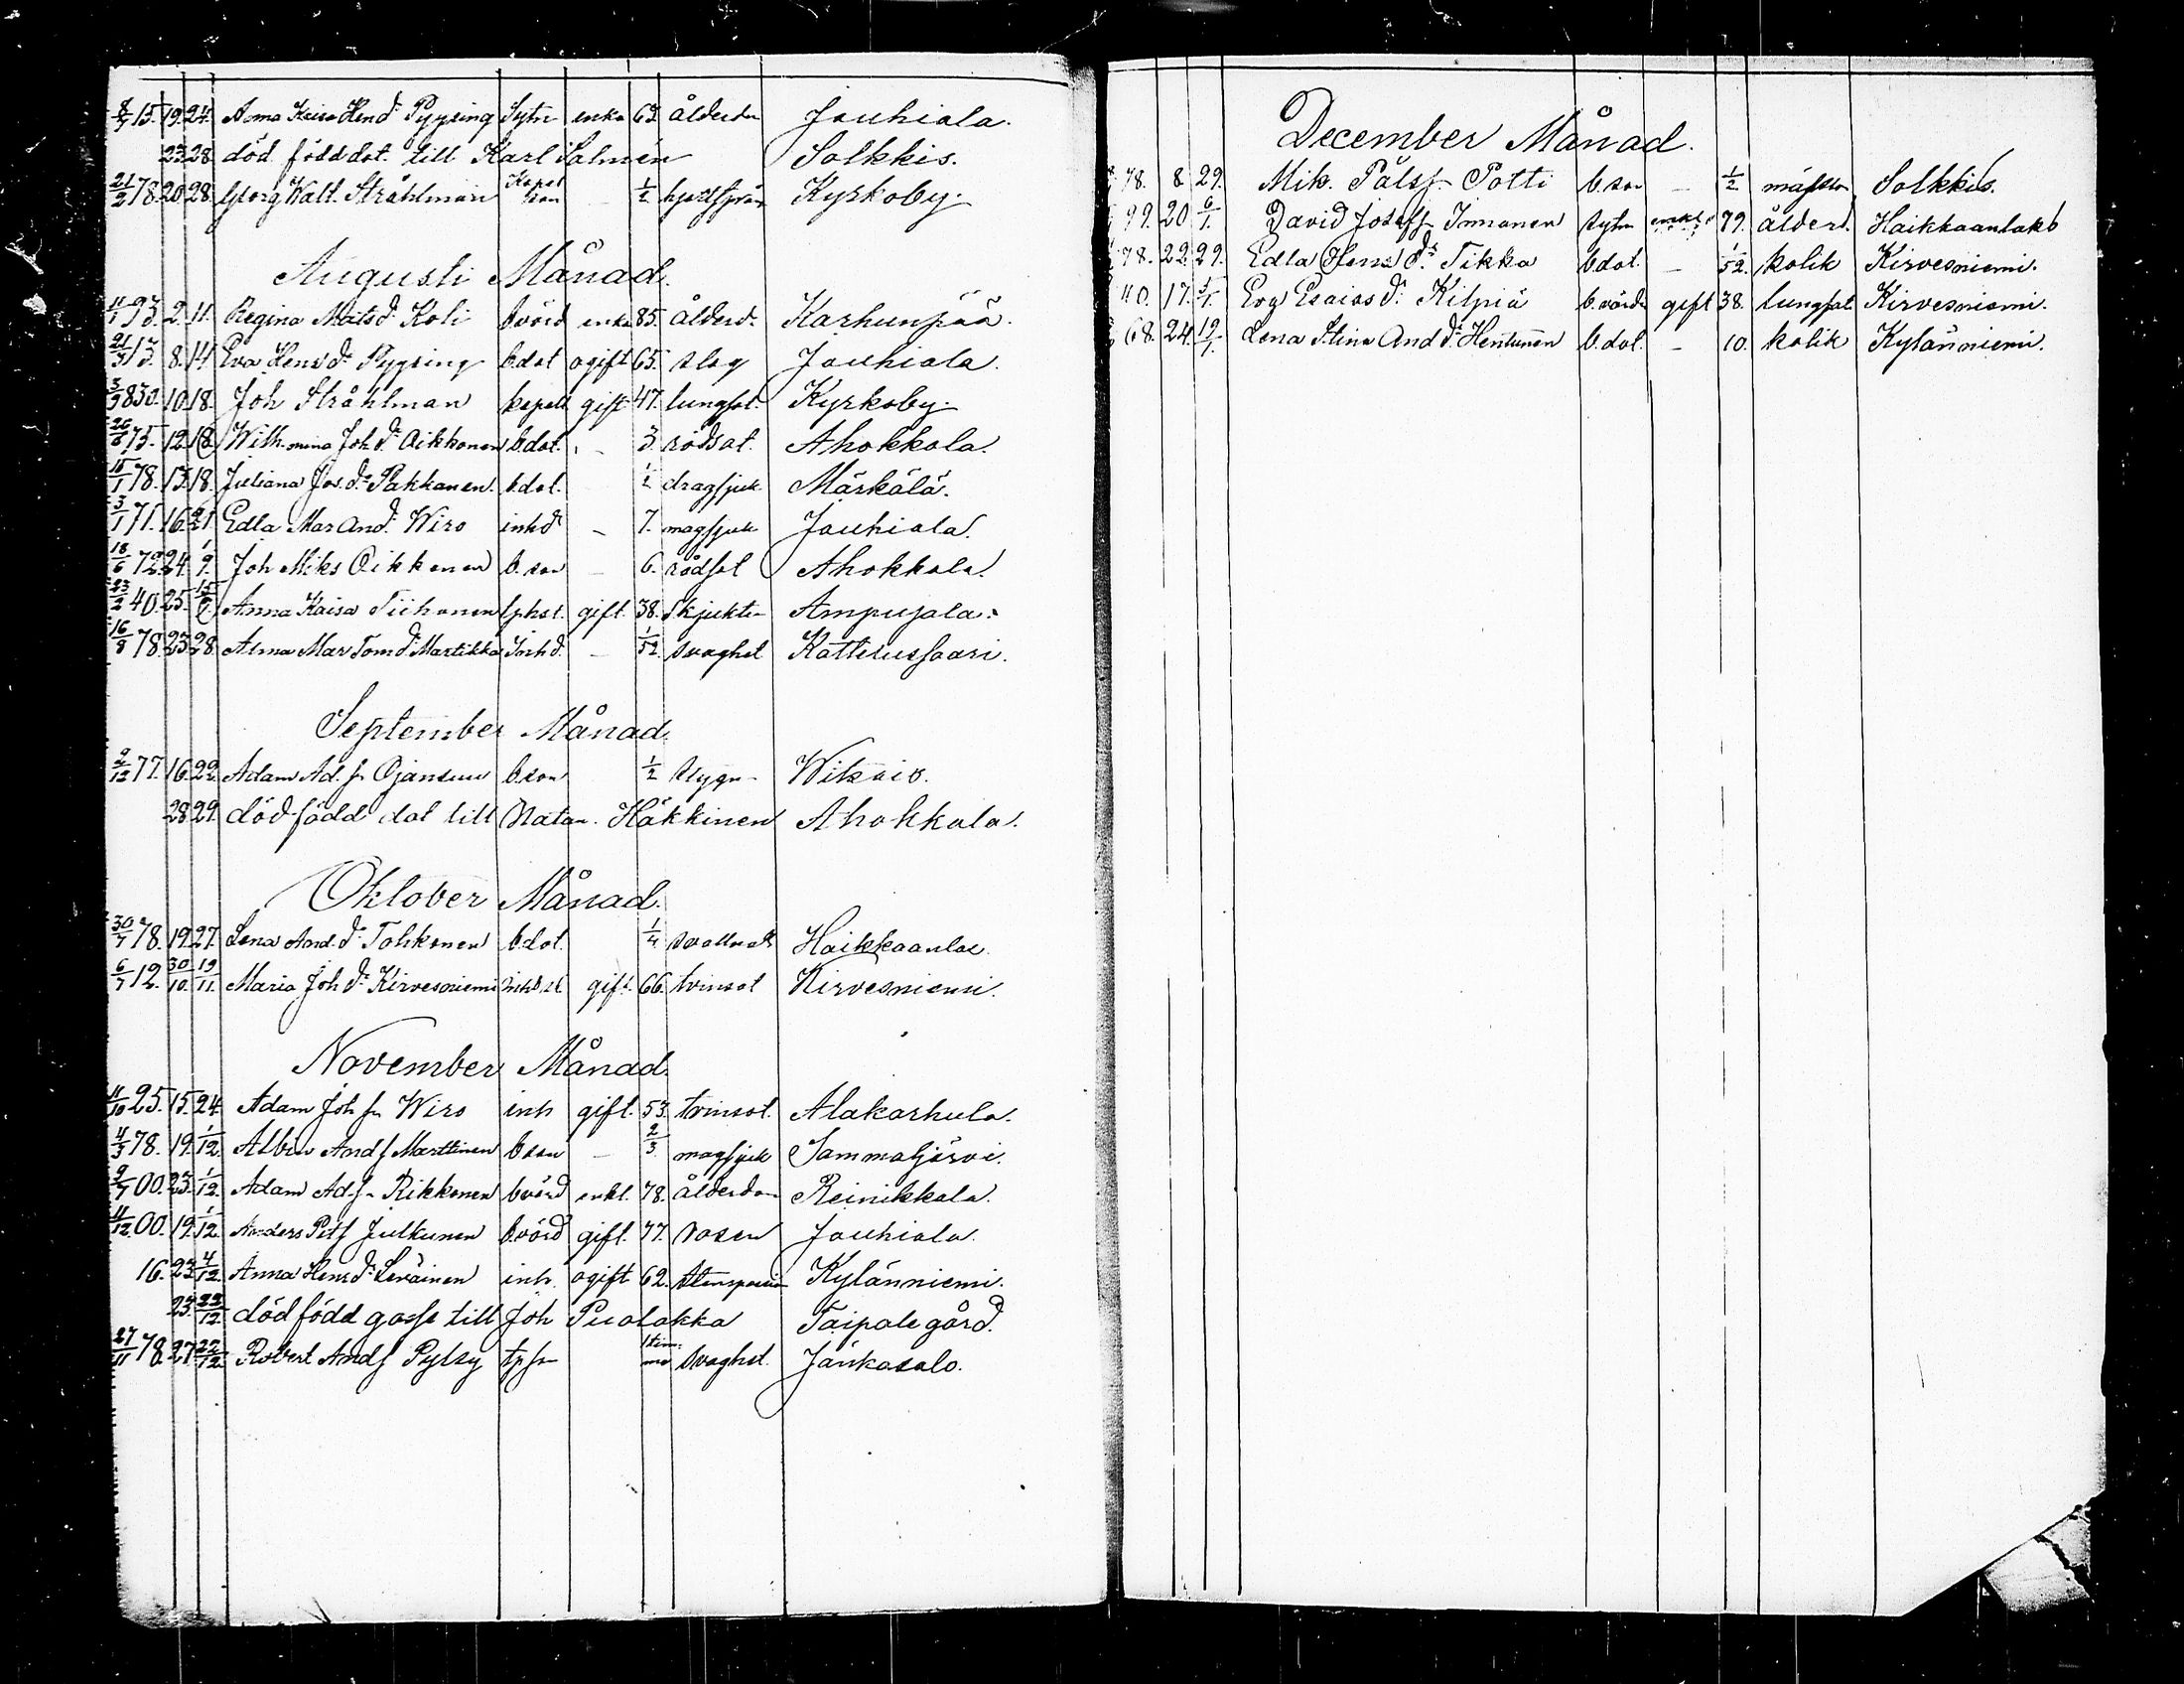 8/7 15. 19. 24. Anna Kaisa Hend:r Pyysing Sytn enka 63 ålderdn Jouhiala.
23. 28. död född dot. till Karl Salmén Solkkis.
21/2 78. 20. 28. Georg Walt. Stråhlman Kapel son – 1/2 Kyrkoby.
Augusti Månad.
11/1 93. 2. 11. Regina Matsd:r Koli b.värd enka 85. ålderd. Karhunpää.
21/3 13. 8. 14. Eva Hensd:r Pyysing b.dot ogift 65. slag Jouhiala.
3/3 830. 10. 18. Joh Stråhlman kapell gift 47. lungsot. Kyrkoby.
26/8 75. 12. 18. Wilh.mina Joh d:r Oikkonen b.dot. – 3. rödsot. Ahokkala.
15/1 78. 13. 18. Juliana Jos. d:r Pakkanen. b.dot. 1/2 dragsjuk. Märkälä.
3/1 71. 16. 21. Edla Mar And:r Wiro inhd:r – 7. magsjuk Jouhiala.
18/6 72. 24. 1/9. Joh Miks Oikkonen b. son – 6. rödsot Ahokkala.
23/2 40. 25. 15/9. Anna Kaisa Tiihonen gift. 38. Ampujala.
16/8 78. 23. 28. Alma Mar Tomd:r Martikka Inhd. – 1/52. svaghet Kattelussaari.
September Månad.
9/12 77. 16. 22. Adam Ad. sn Ojansuu b.son 1/2
28. 29. död född dot till Natan. Häkkinen Ahokkala.
Oktober Månad.
30/7 78. 19. 27. Lena And. d:r Tohkonen b.dot. 1/4 Haikkaanlax
6/7 12. 30/10. 19/11. Maria Joh d:r Kirvesniemi gift. 66. tvinsot Kirvesniemi.
November Månad.
11/10 25. 15. 24. Adam Joh sn Wiro inh gift. 53. tvinsot. Alakarhula.
4/3 78. 19. 1/12. Albin And s Marttinen b son – 2/3. magsjuk Sammaljärvi.
9/7 00. 23. 1/12. Adam Ad. sn Rikkonen b.värd enkl. 78. ålderdom Reinikkala.
11/12. 00. 19. 1/12. Anders Pet s Julkunen b.värd gift. 77. rosen Jouhiala.
16. 23. 4/12. Anna Hensd:r Leväinen inh. ogift 62. Kylänniemi.
23. 22/12. död född gosse till Joh Puolakka Taipale gård.
27/11 78. 27. 22/12. Robert And s Pylsy tpsn 1 timme svaghet. Jänkäsalo.
December Månad.
78. 8. 29. Mik. Påls sn Potti b. son – 1/2 mässln Solkkis.
99. 20. 6/1. David Josefs sn Immonen sytn enkl. 79. ålderd. Haikkaanlaks
78. 22. 29. Edla Hens d:r Tikka b.dot. – 1/52. kolik Kirvesniemi.
40. 17. 5/1. Eva Esaias d:r Kilpiä b. värd gift 38. lungsot. Kirvesniemi.
68. 24. 19/1. Lena Stina And d:r Hentunen b. dot. – 10. kolik Kylänniemi.